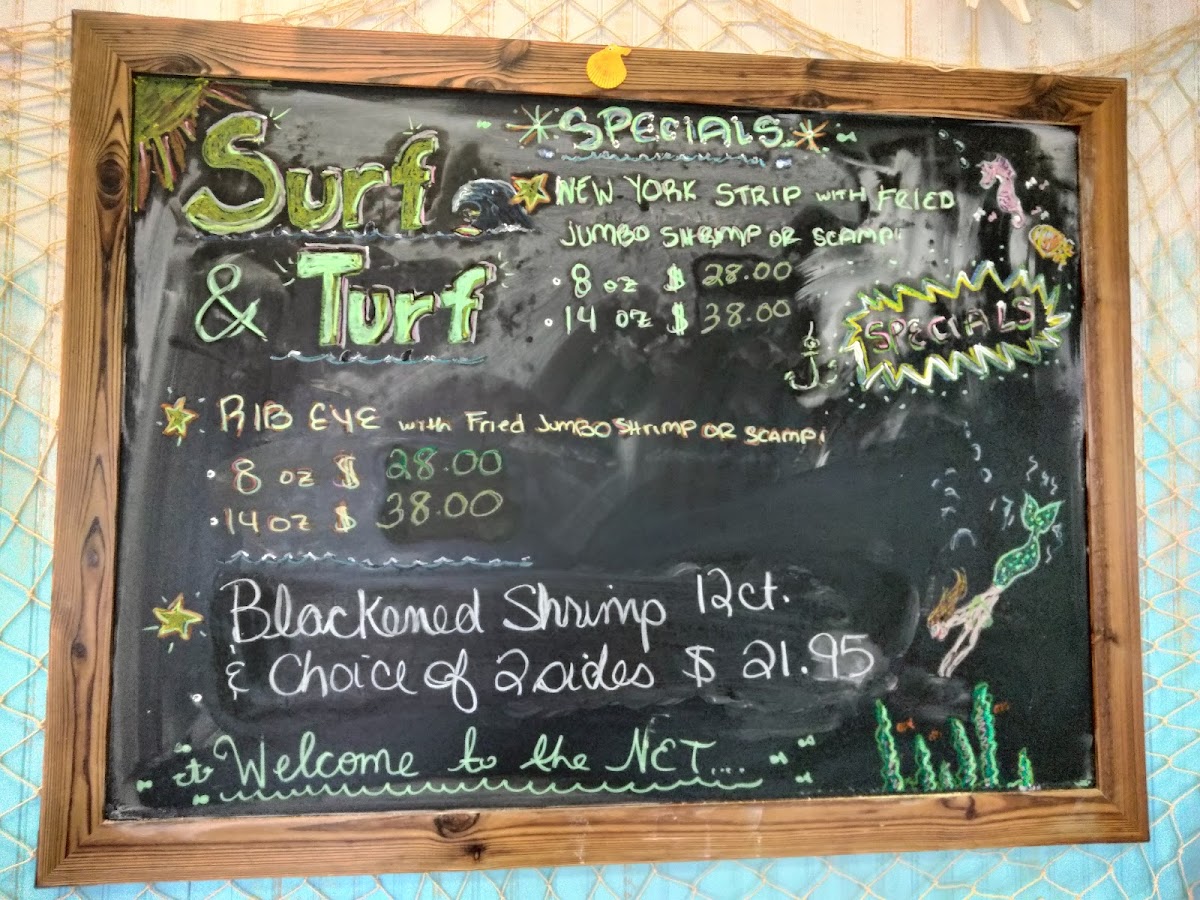 Surf
& Turf
SPECIALS
NEW YORK STRIP with FRIED
JUMBO SHRIMP OR SCAMPI
• 8 oz $ 28.00
• 14 oz $ 38.00
SPECIALS
RIB EYE with Fried JUMBO SHRIMP OR SCAMPI
• 8 oz $ 28.00
• 14 oz $ 38.00
Blackened Shrimp 12ct.
& Choice of 2 sides $ 21.95
Welcome to the NET....